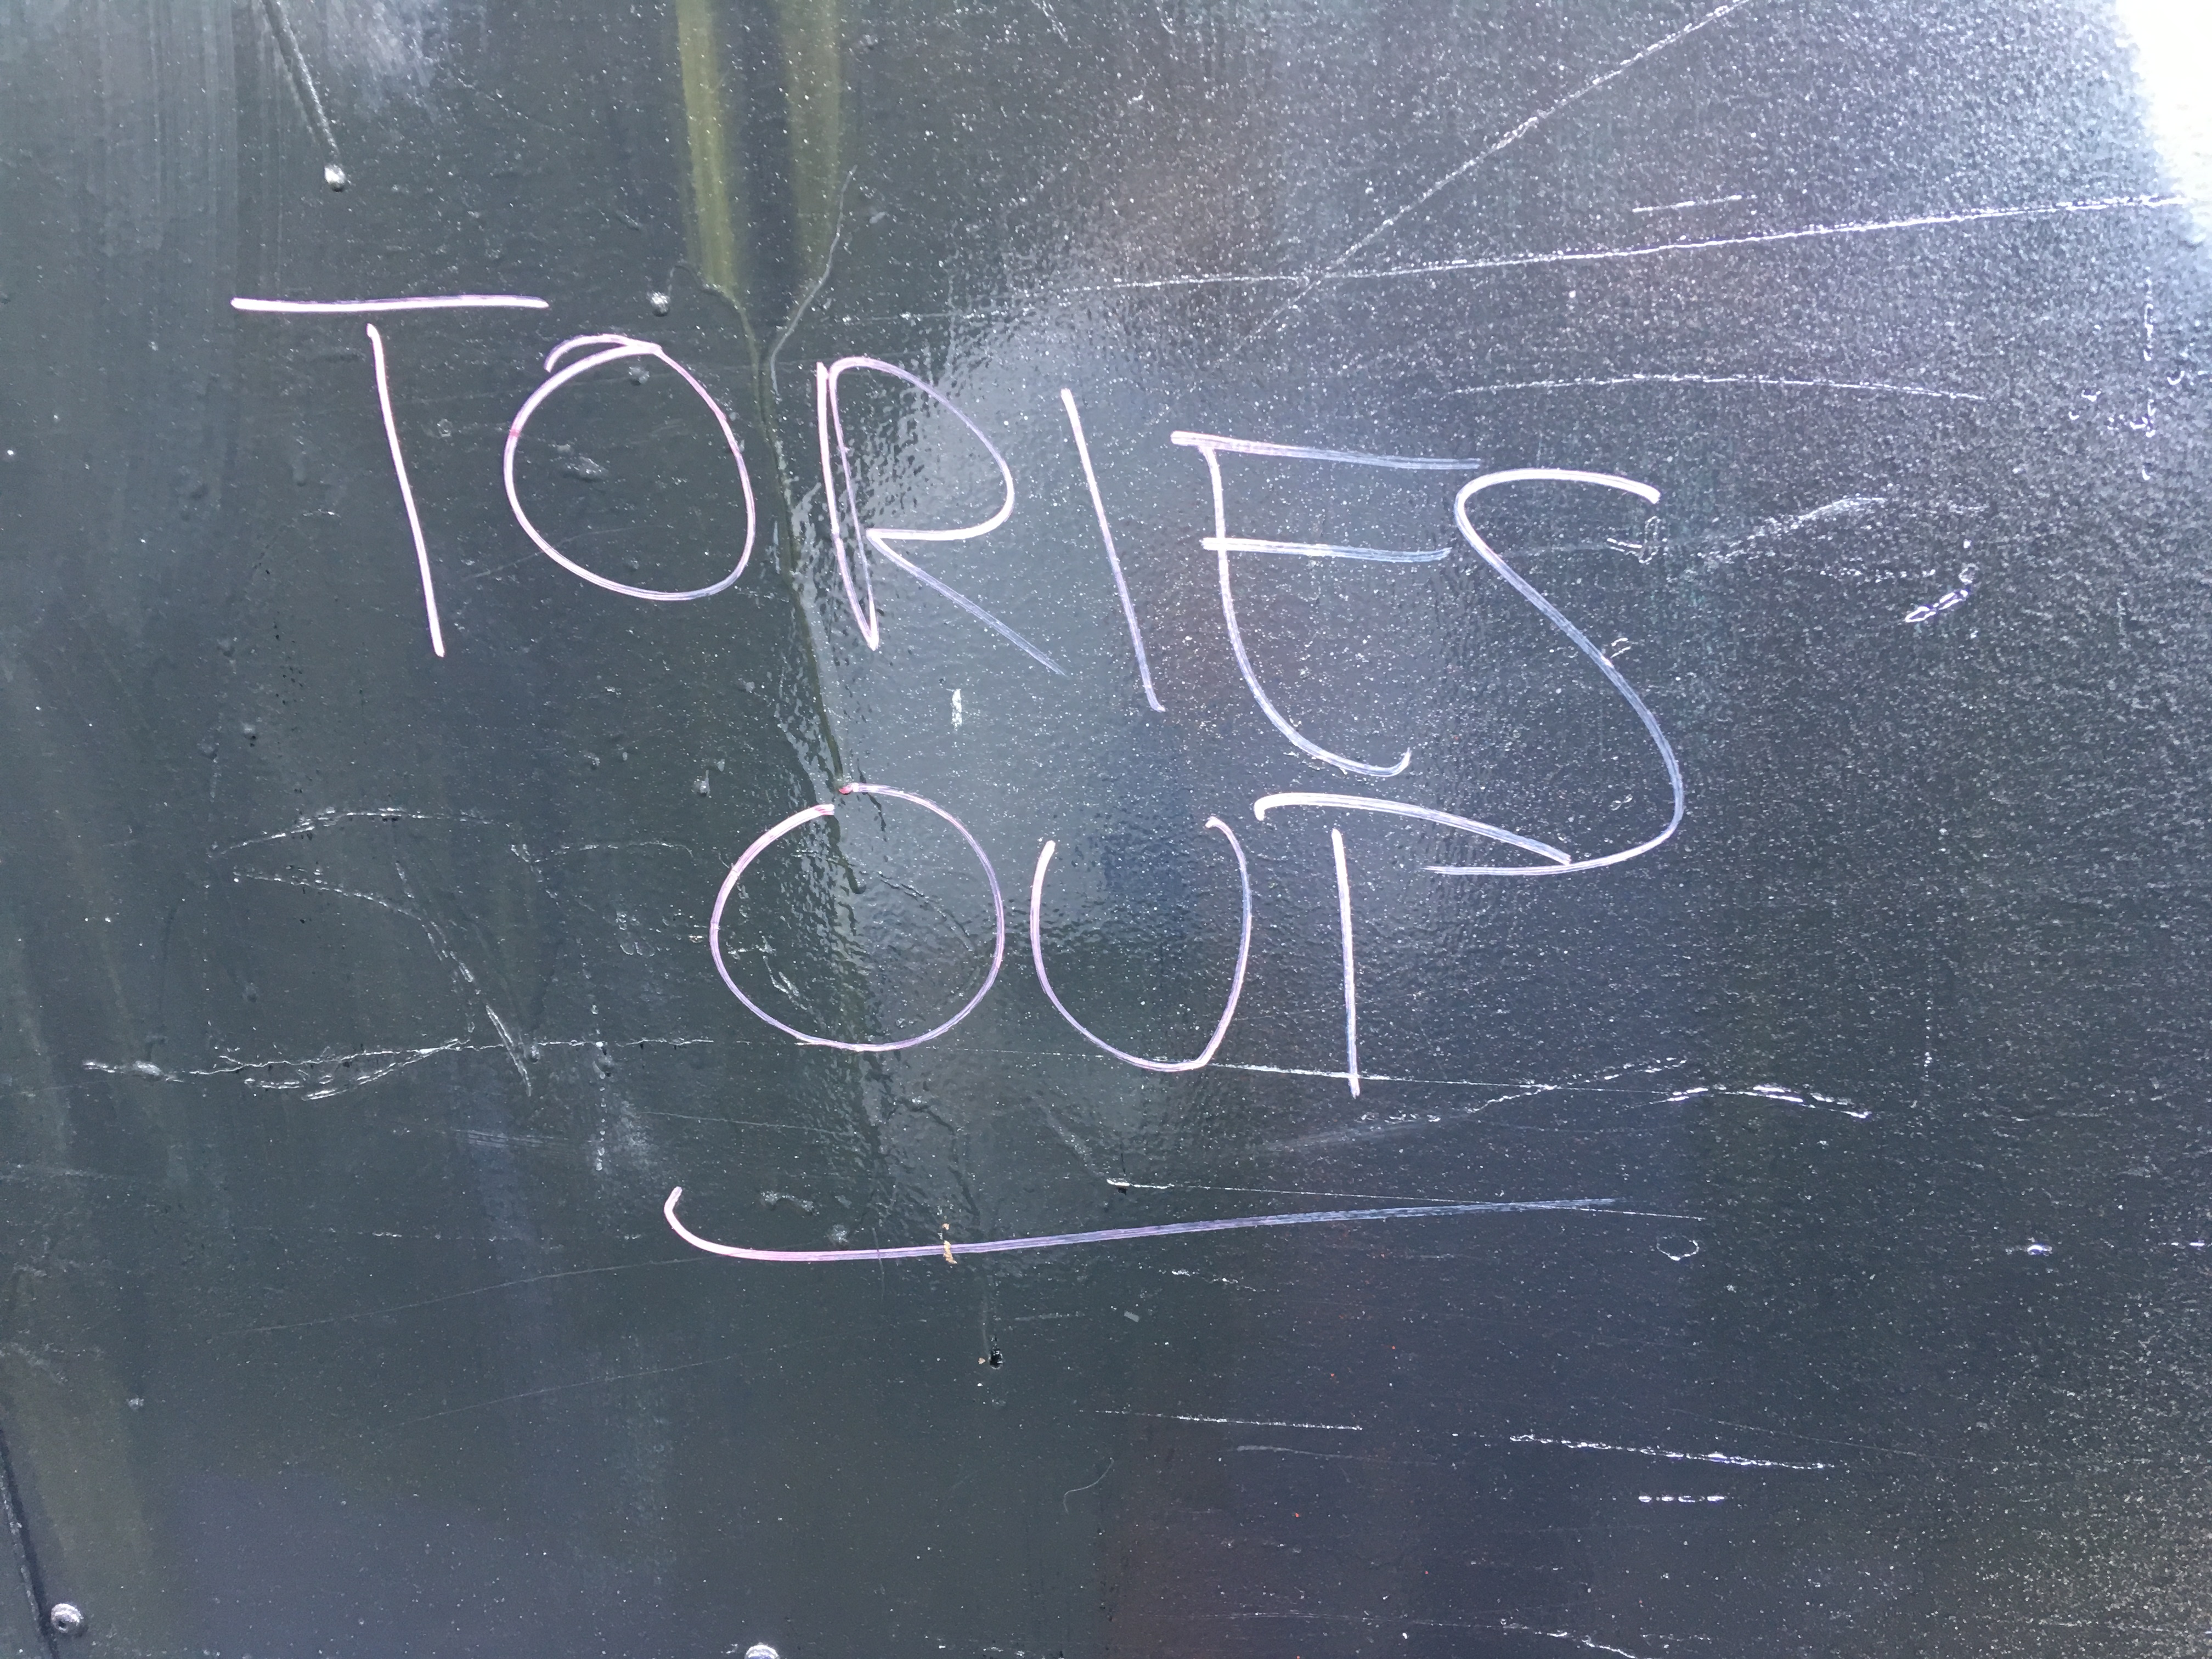 TORIES
OUT